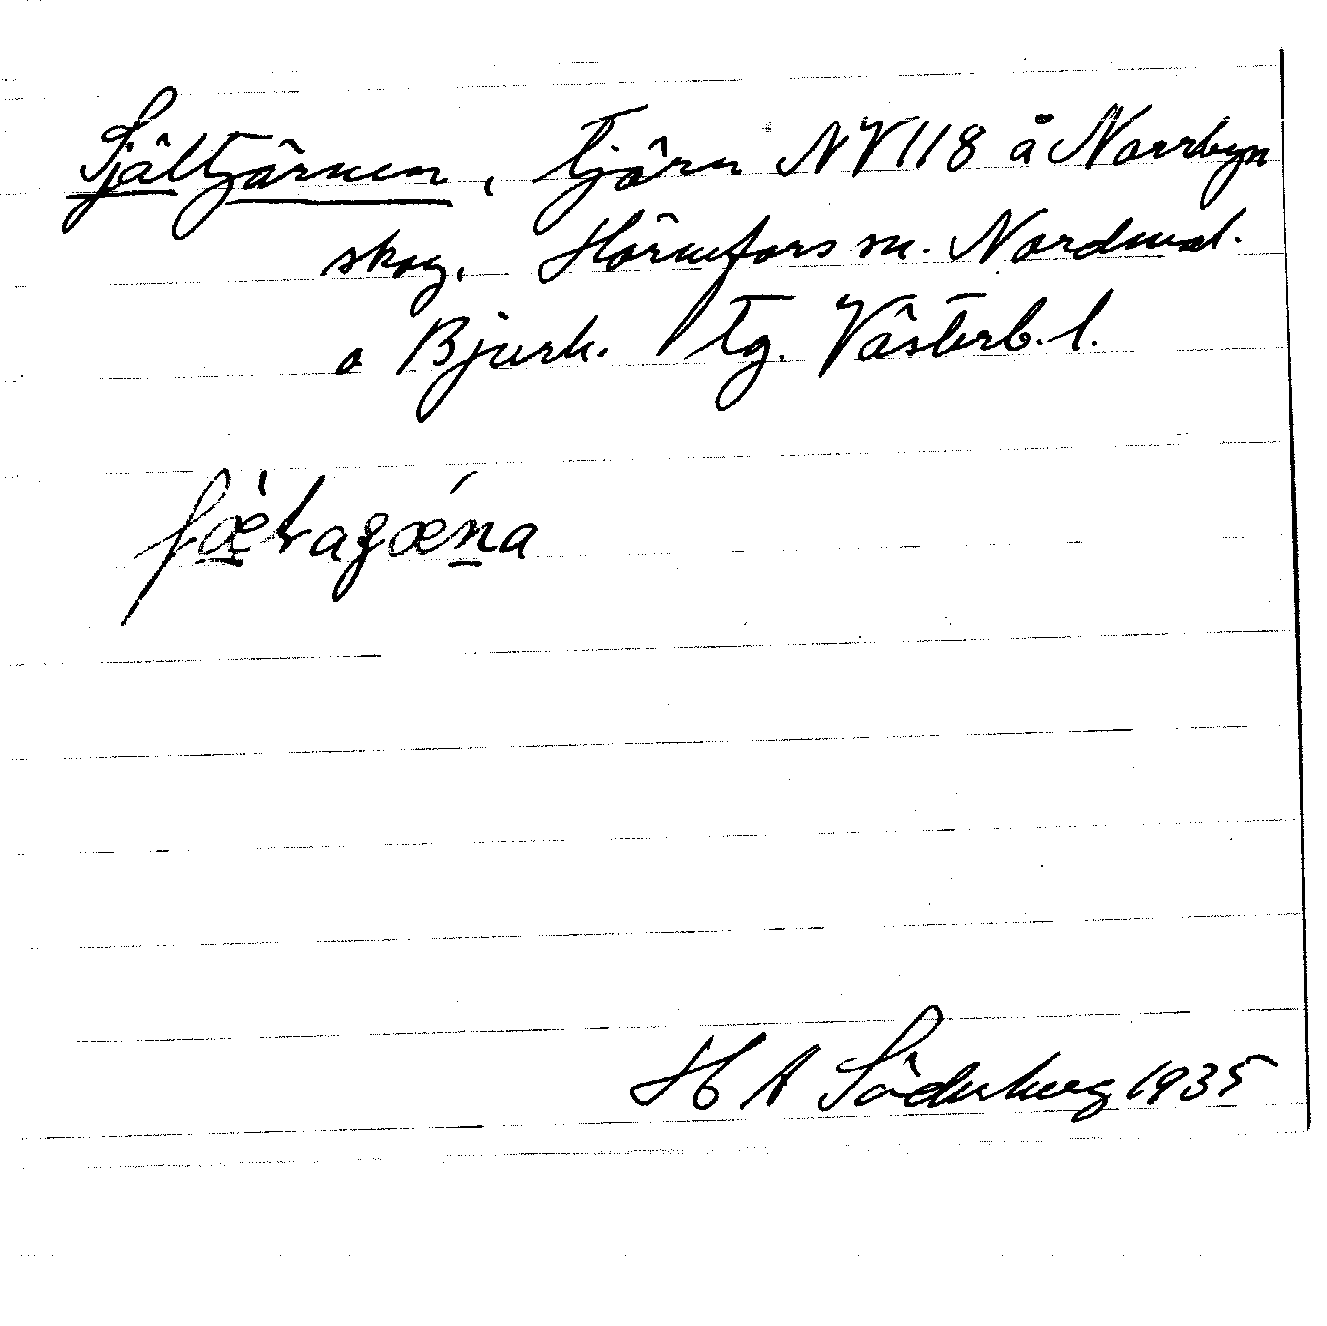 Själtjärnen, tjärn NV118 å Norrbyn
skog, Hörnefors sn. Nordmal.
o Bjurh. Tg. Västerb. l.
H A Söderberg 1935